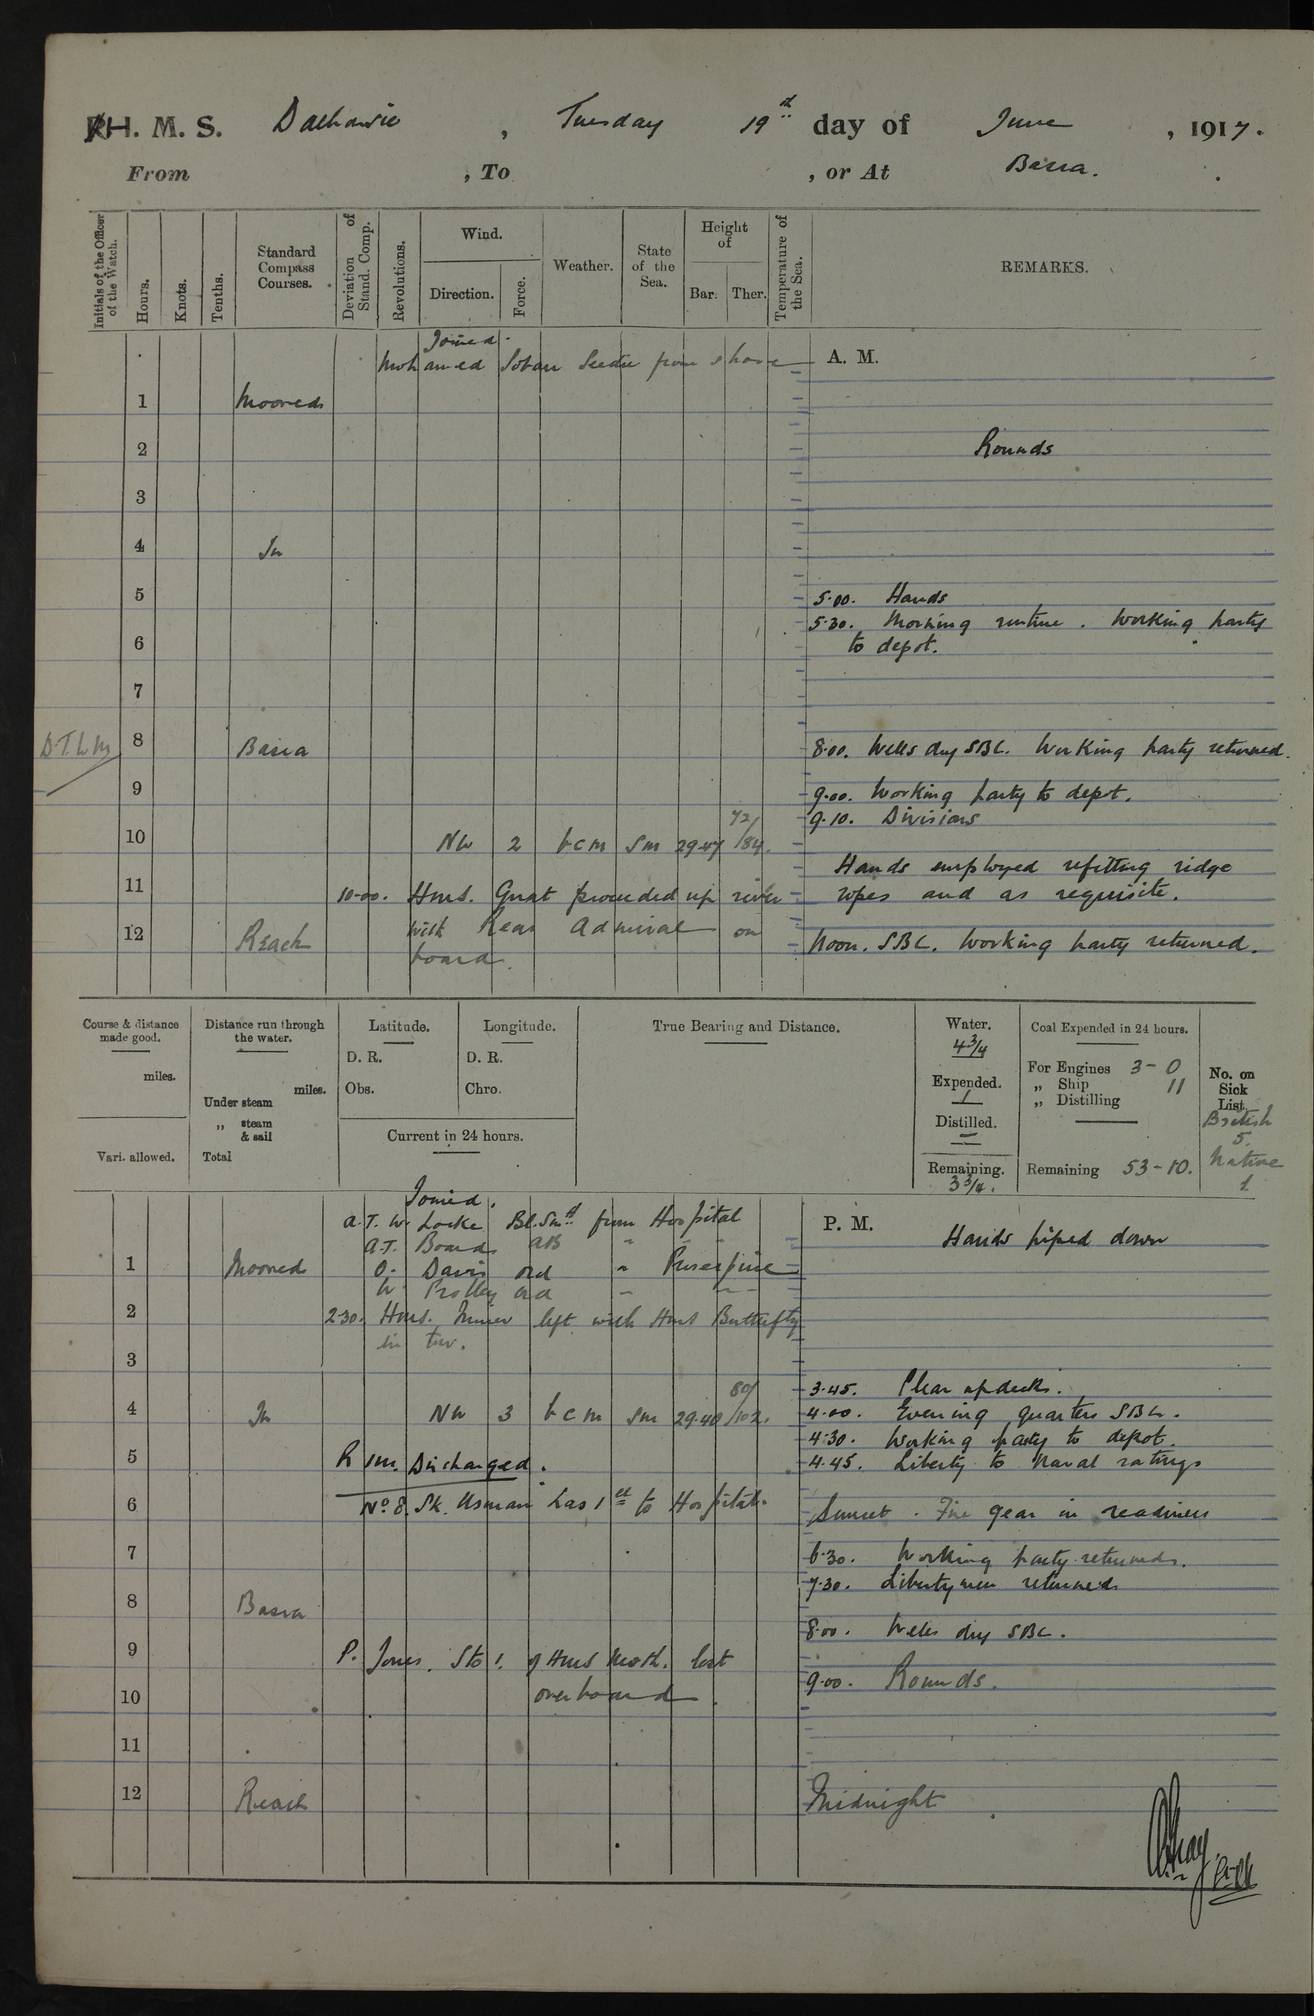 H. M. S. Dalhousie, Tuesday 19th day of June, 1917.
From , To , or At Basra.
Initials of the Officer of the Watch.
Hours.
Knots.
Tenths.
Standard Compass Courses.
Deviation of Stand. Comp.
Revolutions.
Wind.
Direction.
Force.
Weather.
State of the Sea.
Height of
Bar.
Ther.
Temperature of the Sea.
REMARKS.
Joined.
Mohamed Soban Seedie from shore
A. M.
1 Moored
2 Rounds
3
4 In
5 5.00. Hands
5.30. Morning routine. Working party
6 to depot.
7
D.T.L.M. 8 Basra 8.00. Wells dry SBC. Working party returned.
9 9.00. Working party to depot.
9.10. Divisions
10 NW 2 bcm Sm 29.47 72/84.
Hands employed refitting ridge
11 10.00. H.M.S. Gnat proceeded up river ropes and as requisite.
12 Reach with Rear Admiral on Noon. SBC. Working party returned.
board.
Course & distance made good.
miles.
Vari. allowed.
Distance run through the water.
miles.
Under steam
„ steam & sail
Total
Latitude.
D. R.
Obs.
Longitude.
D. R.
Chro.
Current in 24 hours.
True Bearing and Distance.
Water.
4 3/4
Expended.
1
Distilled.
—
Remaining.
3 3/4.
Coal Expended in 24 hours.
For Engines 3 - 0
„ Ship 11
„ Distilling
Remaining 53-10.
No. on Sick List.
British
5.
Native
1.
Joined.
A.T. W. Locke Bl. Smth from Hospital
P. M.
Hands piped down
A.T. Boards AB " "
1 Moored O. Davis Ord " Proserpine
W. Prolley Ord " "
2 2.30. HMS. Miner left with HMS Butterfly
in tow.
3
3.45. Clear up decks.
4 In NW 3 bcm Sm 29.40 80/102. 4.00. Evening quarters SBC.
4.30. Working party to depot.
5 RIM. Discharged. 4.45. Liberty to Naval ratings
6 No 8. Sk. Usman Las 1st to Hospital. Sunset. Fire gear in readiness
7 6.30. Working party returned.
7.30. Libertymen returned
8 Basra
8.00. Wells dry SBC.
9 P. Jones. Sto 1. of HMS Moth. lost
9.00. Rounds.
10 overboard.
11
12 Reach Midnight